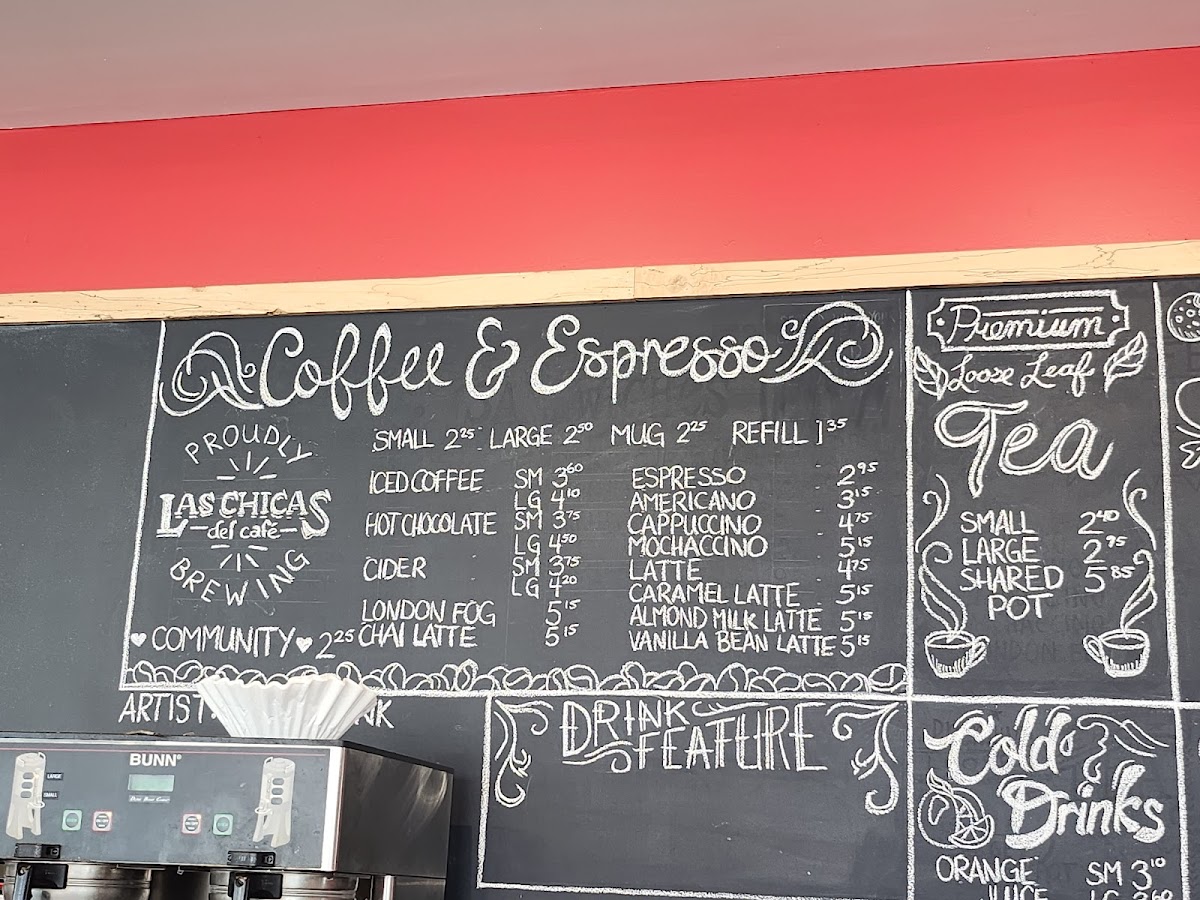 Coffee & Espresso
PROUDLY
LAS CHICAS
del café
BREWING
♥ COMMUNITY ♥ 2.25
SMALL 2.25 LARGE 2.50 MUG 2.25 REFILL 1.35
ICED COFFEE SM 3.60
LG 4.10
HOT CHOCOLATE SM 3.75
LG 4.50
CIDER SM 3.75
LG 4.20
LONDON FOG 5.15
CHAI LATTE 5.15
ESPRESSO 2.95
AMERICANO 3.15
CAPPUCCINO 4.75
MOCHACCINO 5.15
LATTE 4.75
CARAMEL LATTE 5.15
ALMOND MILK LATTE 5.15
VANILLA BEAN LATTE 5.15
Premium
Loose Leaf
Tea
SMALL 2.40
LARGE 2.95
SHARED 5.85
POT
DRINK
FEATURE
Cold
Drinks
ORANGE SM 3.10
JUICE
BUNN
LARGE
SMALL